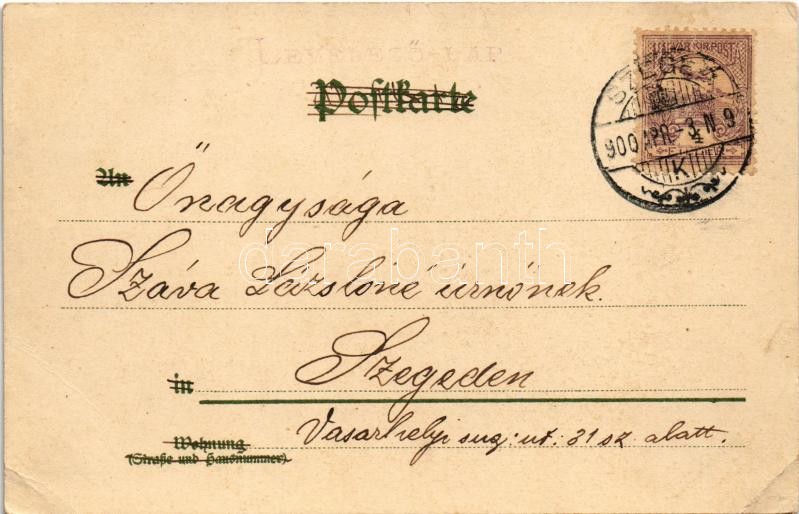 LEVELEZŐ-LAP
Postkarte
MAGYAR KIR. POSTA
SZEGED
900 APR. -3. N 9
K
An Őnagysága
Száva Lászlóné úrnőnek.
darabanth.com
in Szegeden
Wohnung
(Straße und Hausnummer).
Vasarhelyi sug: ut. 31 sz. alatt.